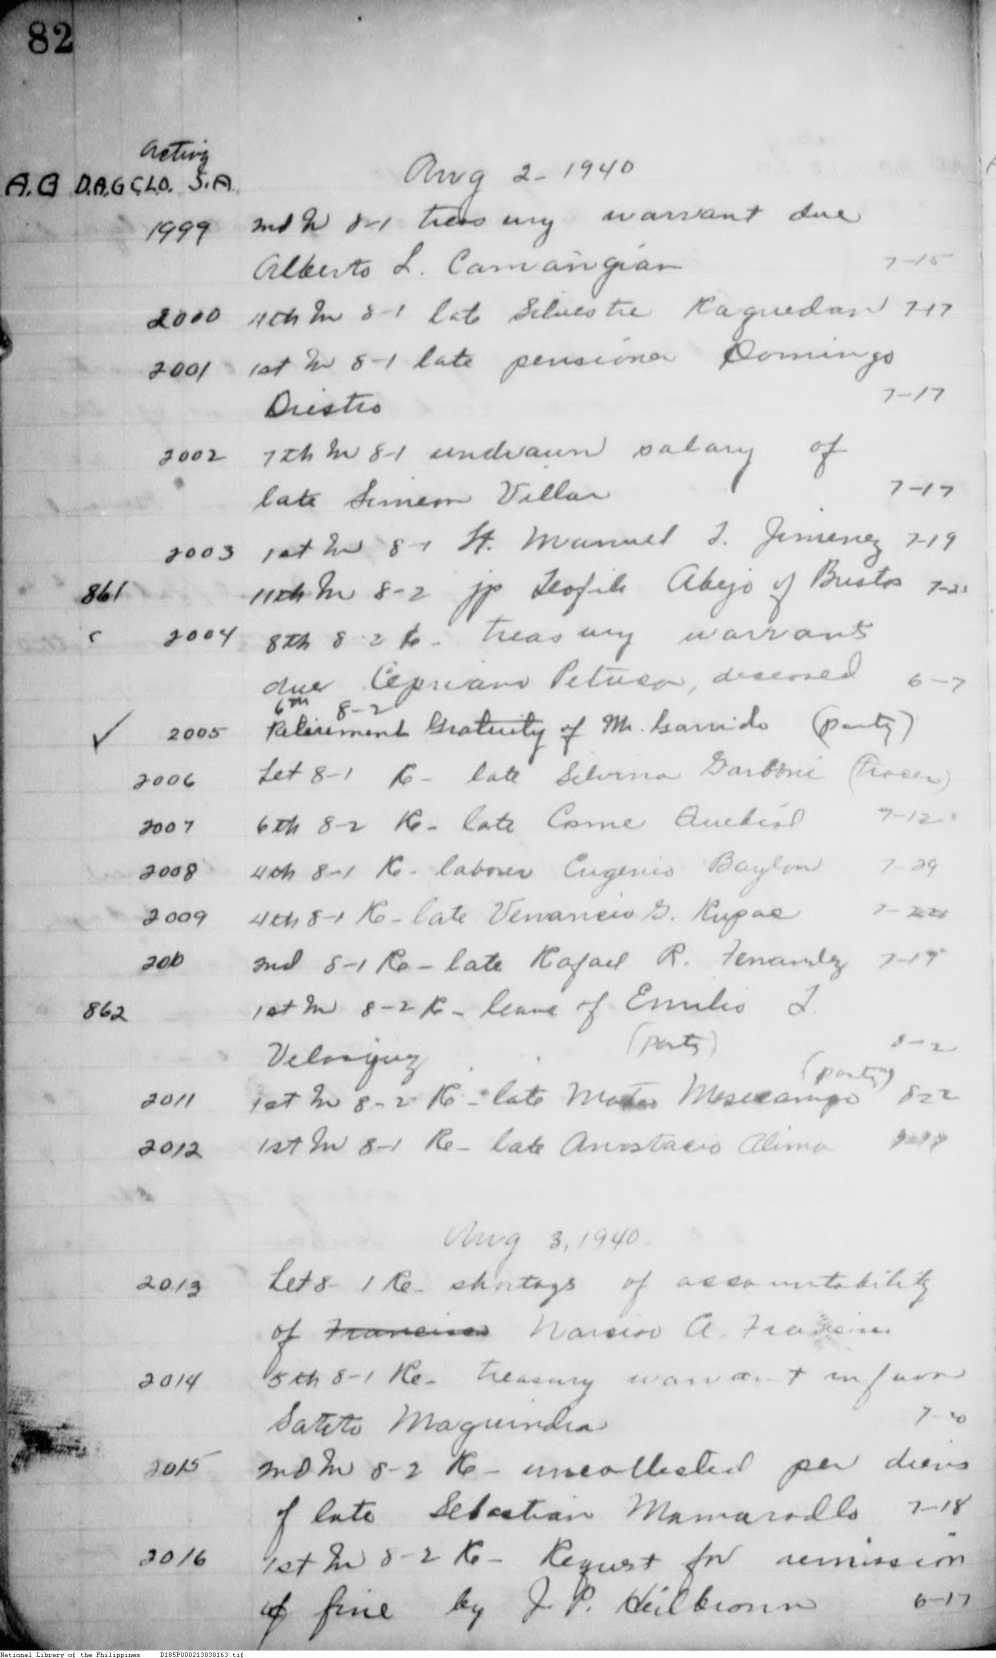 82
Acting
A.G D.A.G C.L.O. S.A.
Aug 2 - 1940
1999 2nd In 8-1 treasury warrant due
Alberto L. Camangian 7-15
2000 4th In 8-1 late Silvestre Raquedan 7-17
2001 1st In 8-1 late pensioner Domingo
Diestro 7-17
2002 7th In 8-1 undrawn salary of
late Simeon Villar 7-17
2003 1st In 8-1 Lt. Manuel T. Jimenez 7-19
861 11th In 8-2 jp Teofilo Abejo of Bustos
2004 8th 8-2 Re- treasury warrant
due Cipriano, deceased 6-7
6th 8-2
2005 Retirement Gratuity of Mr. Garrido (party)
2006 Let 8-1 Re- late Silvina
2007 6th 8-2 Re- late Cosme 7-12
2008 4th 8-1 Re- laborer Eugenio Baylon 7-29
2009 4th 8-1 Re- late Venancio G.
2010 2nd 8-1 Re- late Rafael R. Fernandez 7-19
862 1st In 8-2 Re- leave of Emilio T.
Velasquez (party) 8-2
(party)
2011 1st In 8-2 Re- late
2012 1st In 8-1 Re- late Anastacio Alima
Aug 3, 1940
2013 Let 8-1 Re- shortage of accountability
of Francisco Narciso A.
2014 5th 8-1 Re- treasury warrant in favor
Satoto Maguindra
2015 2nd In 8-2 Re- uncollected per diems
of late Sebastian 7-18
2016 1st In 8-2 Re- Request for remission
of fine by J. P. Heilbronn 6-17
National Library of the Philippines D185P000213830163.tif